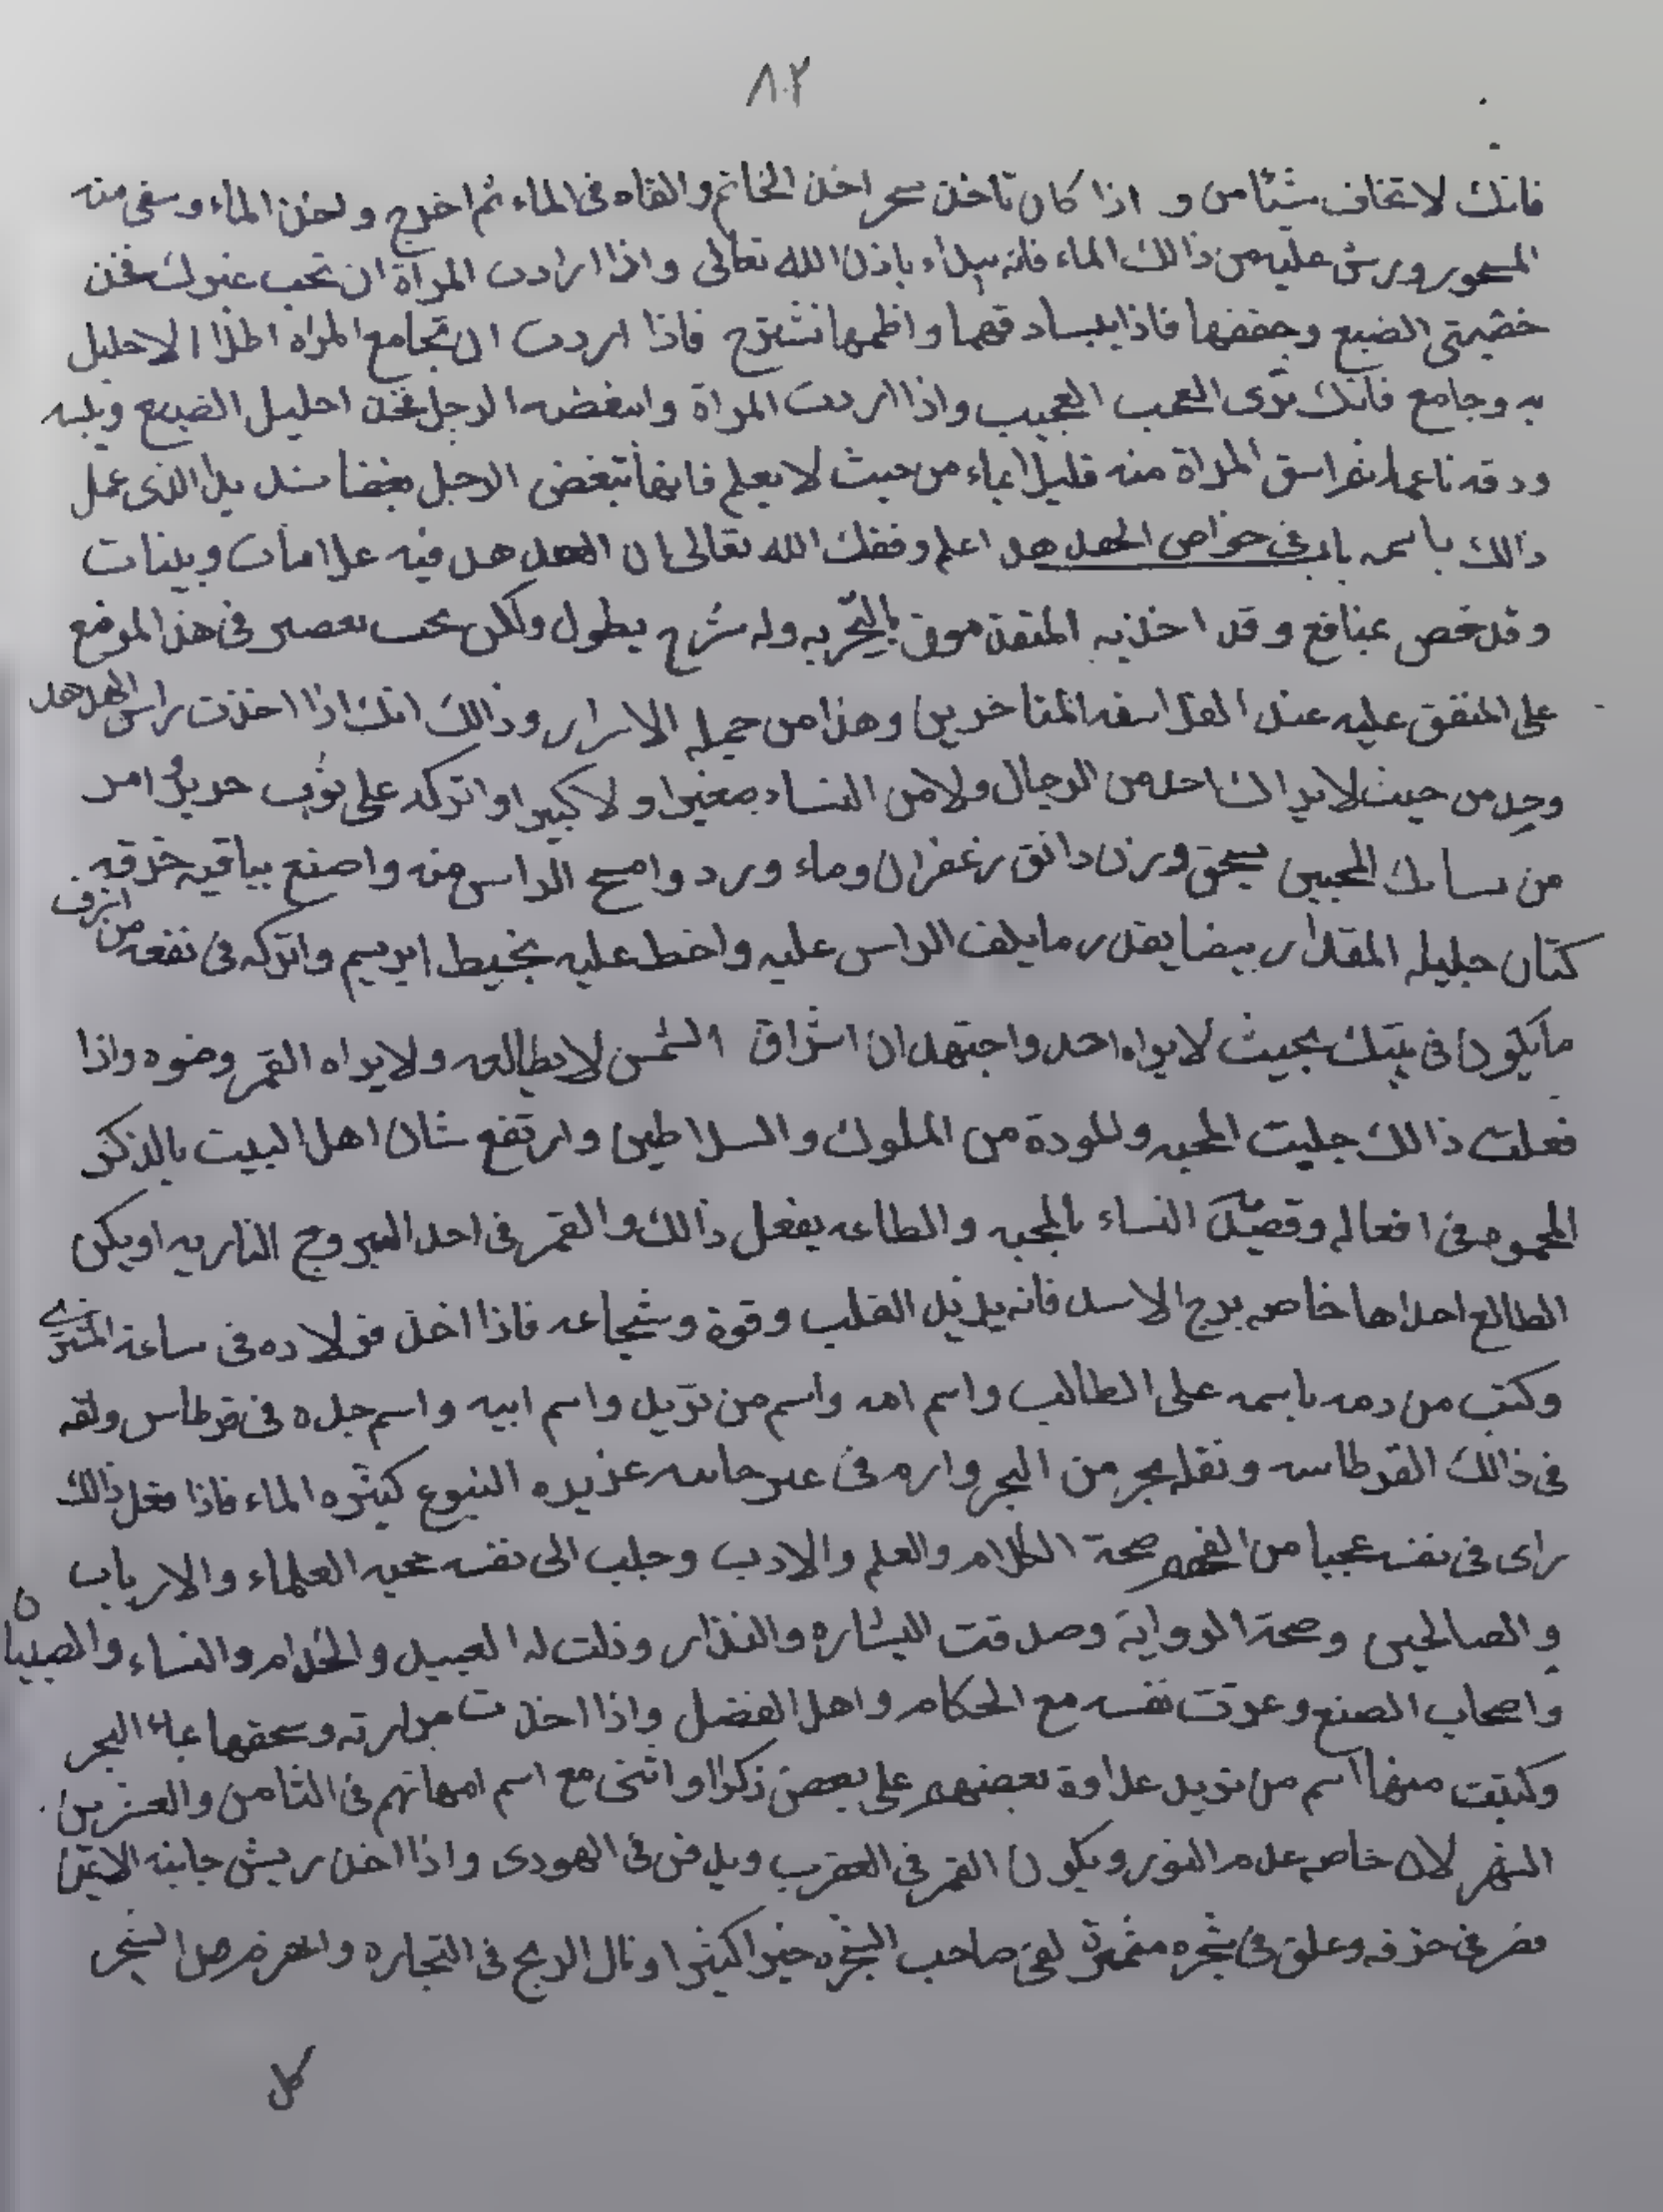 ٨٠٢
فانك لا تخاف شئا من و اذا كان تاخذ سحر اخذ الخاتم والقاه فى الماء ثم اخرج و لخذ الماء وسقى منه
المسحور ورش عليه من ذالك الماء فانه يبراء باذن الله تعالى واذا ارادت المراة ان تحب غيرك فخذ
خصيتى الضبع وجففها فاذا يبسا دقهما واطمها فاذا اردت ان تجامع المراه اطلا الاحليل
به وجامع فانك ترى العجب العجيب واذا اردت المراة وابغضه الرجل فخذ احليل الضبع ويبسه
ودقه ناعما ثم اسق المراة منه قليل بماء من حيث لا يعلم فانها تبغض الرجل بغضا شديدا الذى عمل
ذالك باسمه باب فى خواص الهدهد اعلم وفقك الله تعالى ان الهدهد فيه علامات وبينات
وقد خص بمنافع وقد اخذ به المتقدمون بالتجربه وله شرح يطول ولكن نحب نعصر فى هذ الموضع
على المتفق عليه عند الفلاسفه المتاخرين وهذا من جمله الاسرار وذالك انك اذا اخذت راس الهدهد
وحد من حيث لا يراك احد من الرجال ولا من النساء صغيرا ولا كبيرا واتركه على ثوب حرير امر
من يسحق وزن دانق زعفران وماء ورد وامسح الراس منه واصنع بباقيه خرقه
كتان جليله المقدار بيضا بقدر ما يلف الراس عليه واخط عليه بخيط ابريسم واتركه فى نفعه من اشرف
ما يكون فى بيتك بحيث لا يراه احد واجتهد ان اشراق الشمس لا يطالعه ولا يراه القمر وضوه واذا
فعلت ذالك جلبت المحبه وللمودة من الملوك والسلاطين وارتفع شان اهل البيت بالذكر
المحمود فى افعاله وقضيت النساء بالمحبه والطاعه يفعل ذالك والقمر فى احد البروج الناريه او يكن
الطالع احداها خاصه برج الاسد فانه يزيد القلب وقوة وشجاعه فاذا اخذ فولاده فى ساعة المشترى
وكتب من دمه باسمه على الطالب واسم امه واسم من تريد واسم ابيه واسم جده فى قرطاس ولفه
فى ذالك القرطاسه ونقله بحجر من البحر وارم فى عين غزيره النبوع كثيره الماء فاذا فعل ذالك
راى فى نفسه عجبا من الفهم صحة الكلام والعلم والادب وجلب الى نفسه محبه العلماء والارباب
والصالحين وصحة الرواية وصدقت البشاره والنذار وذلت له العبيد والخدام والنساء والصبيان
واصحاب الصنع وعزت نفسه مع الحكام واهل الفضل واذا اخذت مرارته وسحقها بماء البحر
وكتبت منها اسم من تريد عداوة بعضهم على بعض ذكرا او انثى مع اسم امهاتهم فى الثامن والعشرين
الشهر لان خاصه عدم النور ويكون القمر فى العقرب ويدفن فى الهودى واذا اخذ ريش جانبه الايمن
فصر فى خرقه وعلق فى شجره مثمرة لقى صاحب الشجره خيرا كثيرا ونال الربح فى التجاره الشجر
كل